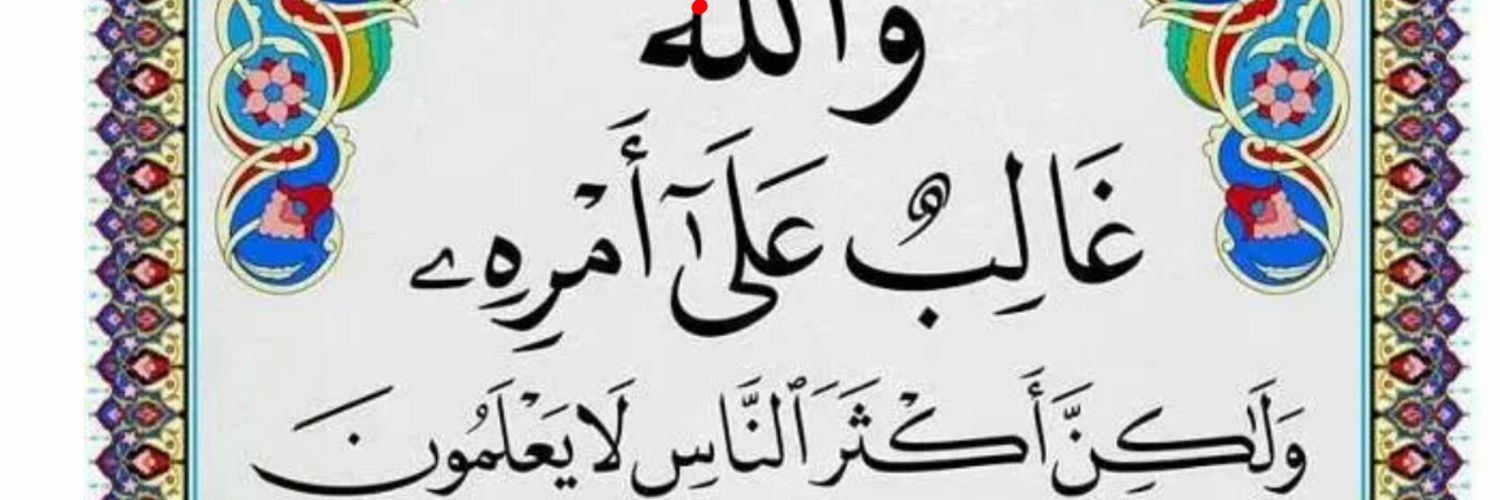 والله
غَالِبٌ عَلَىٰٓ أَمْرِهِۦ
وَلَٰكِنَّ أَكْثَرَ ٱلنَّاسِ لَا يَعْلَمُونَ